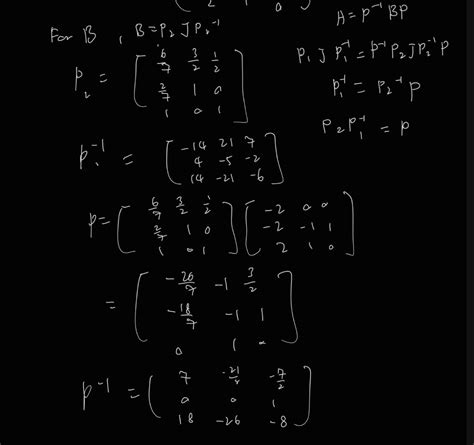 ( 2 1 0 )
For B , B = P₂ J P₂⁻¹
A = P⁻¹ B P
P₁ J P₁⁻¹ = P⁻¹ P₂ J P₂⁻¹ P
P₁⁻¹ = P₂⁻¹ P
P₂ P₁⁻¹ = P
P₂ = [ 6/7 3/2 1/2
2/7 1 0
1 0 1 ]
P⁻¹ = [ -14 21 7
4 -5 -2
14 -21 -6 ]
P = [ 6/7 3/2 1/2
2/7 1 0
1 0 1 ] [ -2 0 0
-2 -1 1
2 1 0 ]
= [ -26/7 -1 3/2
-18/7 -1 1
0 1 0 ]
P⁻¹ = ( 7 -21/2 -7/2
0 0 1
18 -26 -8 )